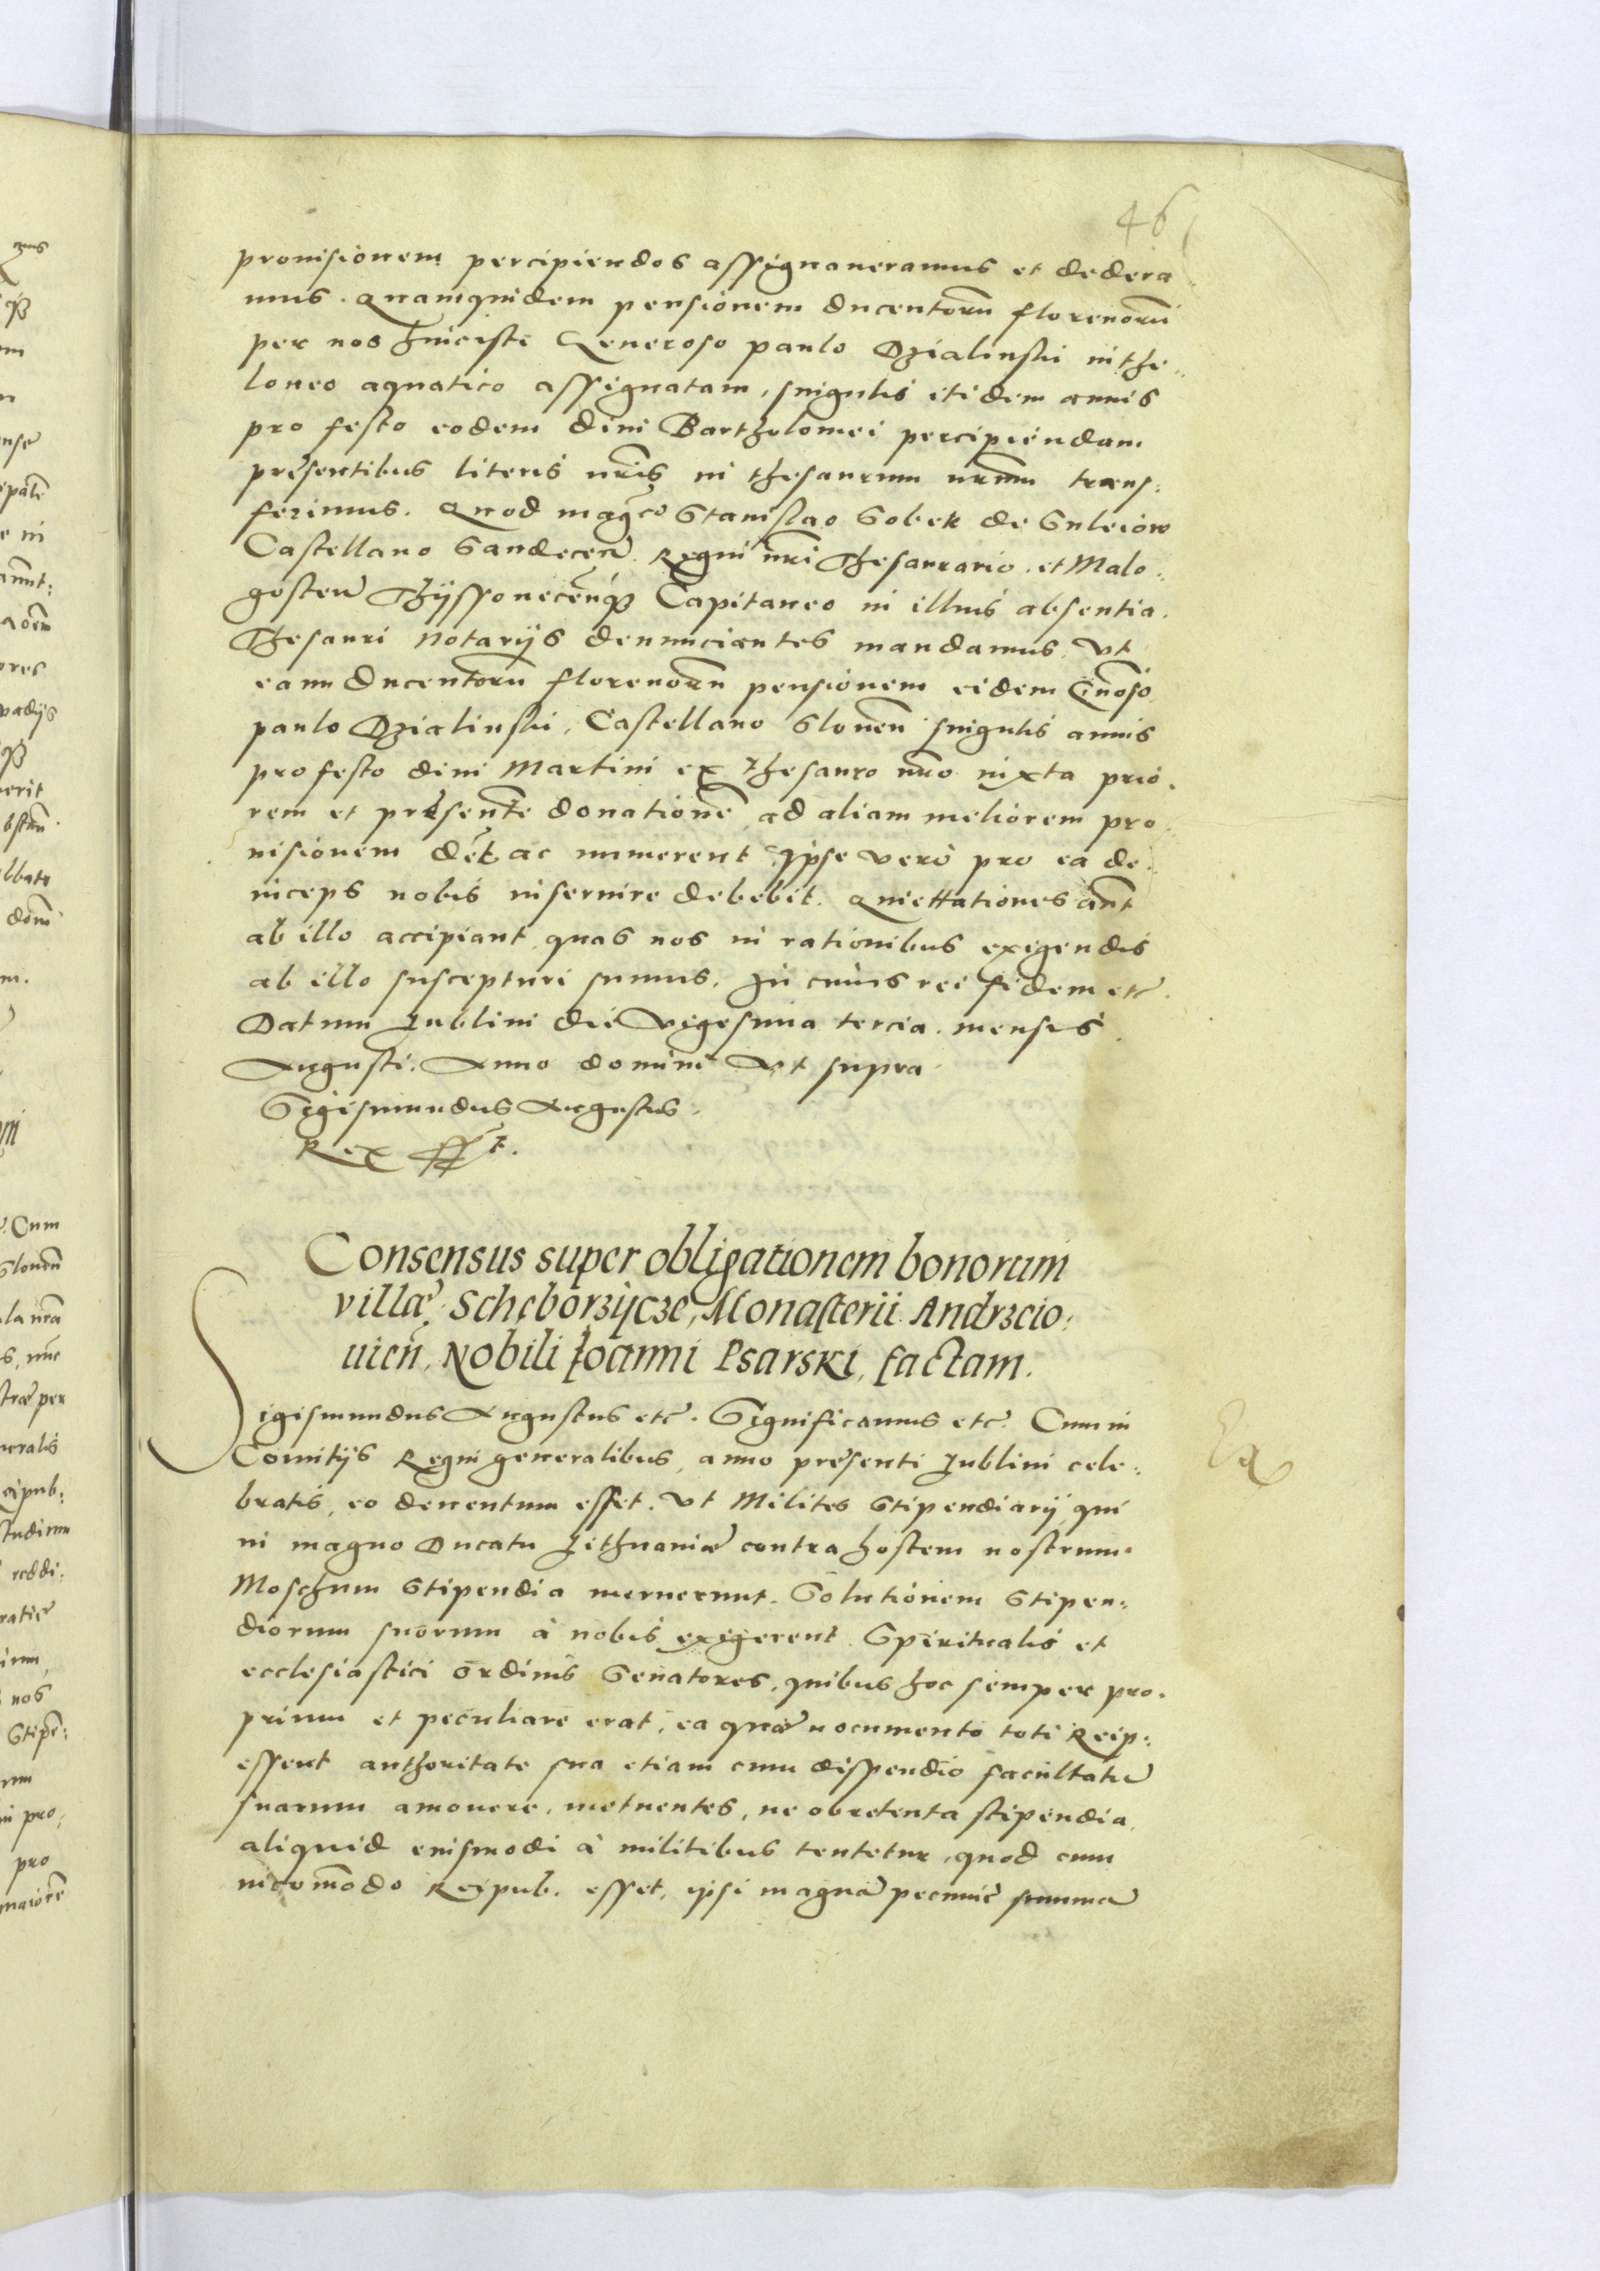 46
provisionem percipiendos assignaveramus et dedera„
mus. Quamquidem pensionem ducentorũ florenorũ
per nos huicisti Generoso paulo Dzialinski in the„
loneo aquatico assignatam, singulis itidem annis
pro festo eodem divi Bartholomei percipiendam
presentibus literis nr̃is in thesaurum nr̃um trans„
ferimus. Quod magco Stanislao Sobek de Suleiow
Castellano Sandeceñ. Regni nr̃i Thesaurario. et Malo„
gosteñ Thyssoviceñq3 Capitaneo in illius absentia.
Thesauri Notarijs denunciantes mandamus, Vt
eam Ducentorũ florenorũ pensionem eidem Gñoso
paulo Dzialinski, Castellano Sloneñ singulis annis
pro festo divi Martini ex thesauro nr̃o iuxta prio„
rem et presentẽ donationẽ, ad aliam meliorem pro„
visionem dẽt ac numerent. Ipse verò pro ea de„
inceps nobis inservire debebit. Quiettationes aũt
ab illo accipiant, quas nos in rationibus exigendis
ab illo suscepturi sumus. In cuius rei fidem etc̃.
Datum Lublini die Vigesima tercia. mensis
Augusti. Anno domini Vt supra.
Sigismundus Augustus.
Rex sst.
Consensus super obligationem bonorum
villæ. Scheborzijcze, Monasterii Andrzeio:
vieñ, Nobili Ioanni Psarski, factam.
Sigismundus Augustus etc̃. Significamus etc̃. Cum in
Comitijs Regni generalibus, anno presenti Lublini cele„
bratis, eo deventum esset. Vt Milites Stipendiarij, qui
in magno Ducatu Lithuaniæ contra hostem nostrum
Moschum Stipendia meruerunt. Solutionem Stipen„
diorum suorum à nobis exigerent. Spiritualis et
ecclesiastici ordinis Senatores, quibus hoc semper pro„
prium et peculiare erat, ea quæ nocumento toti Reip:
essent authoritate sua etiam cum dispendio facultatũ
suarum amovere, metuentes, ne ob retenta stipendia
aliquid eiusmodi à militibus tentetur, quod cum
incom̃odo Reipub. esset, ipsi magnã pecuniẽ summã